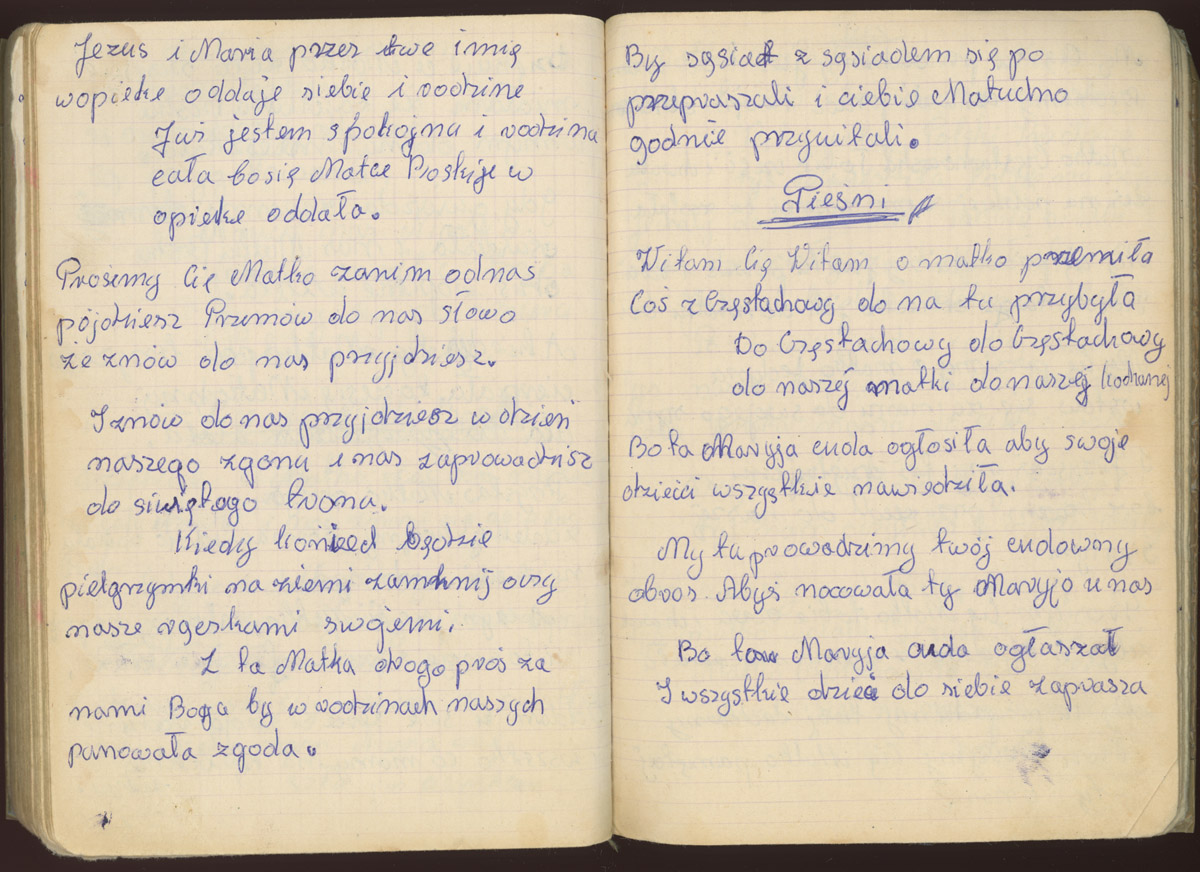 Jezus i Maria przez twe imię
wopieke oddaje siebie i rodzine
Już jestem spokojna i rodzina
cała bosię Matce Boskije w
opieke oddała.
Prosimy Cię Matko zanim odnas
pójdziesz Przemów do nas słowo
że znów do nas przyjdziesz.
I znów do nas przyjdziesz w dzień
naszego zgonu i nas zaprowadzisz
do świętego trona.
Kiedy konied będzie
pielgrzymki na ziemi zamknij oczy
nasze rączkami swojemi.
I ta Matka drogo proś za
nami Boga by w rodzinach naszych
panowała zgoda.
By sąsiad z sąsiadem się po
przepraszali i ciebie Matuchno
godnie przywitali.
Pieśni
Witam Cię Witam o matko przemiła
Coś z Częstachowy do na tu przybyła
Do Częstachowy do Częstachowy
do naszej matki do naszej kochanej
Bo ta Maryja cuda ogłosiła aby swoje
dzieici wszystkie nawiedziła.
My tu prowadzimy twój cudowny
obros Abyś nocowała ty Maryjo u nas
Bo ta Maryja cuda ogłasza
I wszystkie dzieci do siebie zaprasza